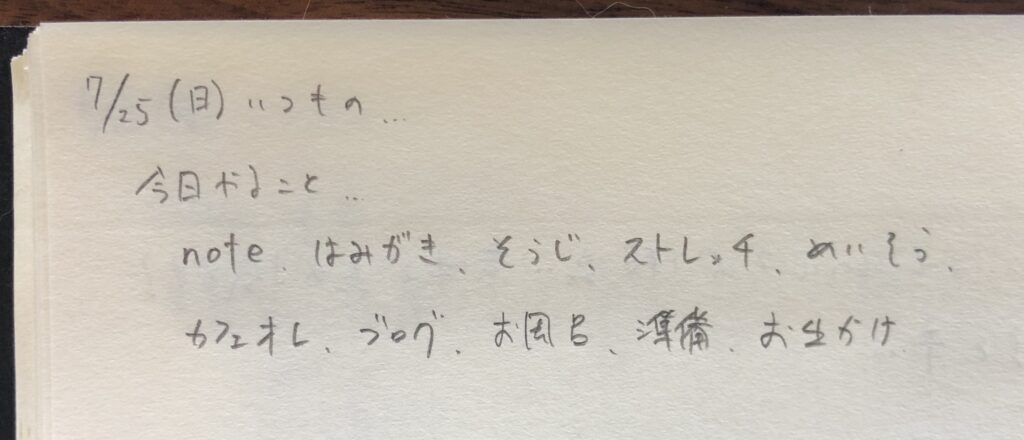 7/25(日)いつもの...
今日やること...
note、はみがき、そうじ、ストレッチ、めいそう、
カフェオレ、ブログ、お風呂、準備、お出かけ